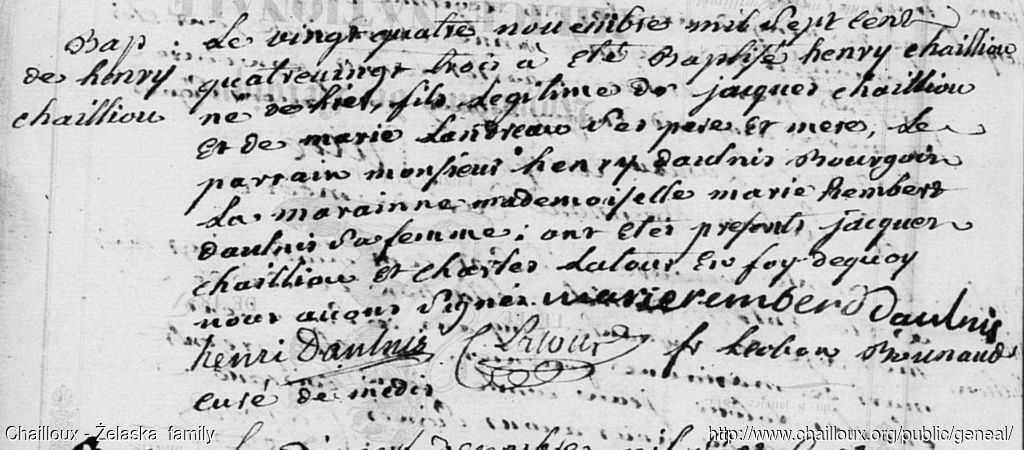 Bap. Le vingt quatre nouembre mil Sept Cent
de henry quatreuingt trois à eté Baptisé henry Chailliou
chailliou né de hier, fils Legitime de jacques chailliou
Et de marie Landreau Ses pere Et mere, Le
parrain monsieur henry daulnis Bourgoin
La marainne mademoiselle marie Rembert
daulnis Sa femme; ont etés presents jacques
chailliou Et charles Latour En foy dequoy
nous auons Signés. marie rembert Daulnis
henri Daulnis C Latour fr Leobon
curé de medis
Chailloux - Żelaska family http://www.chailloux.org/public/geneal/